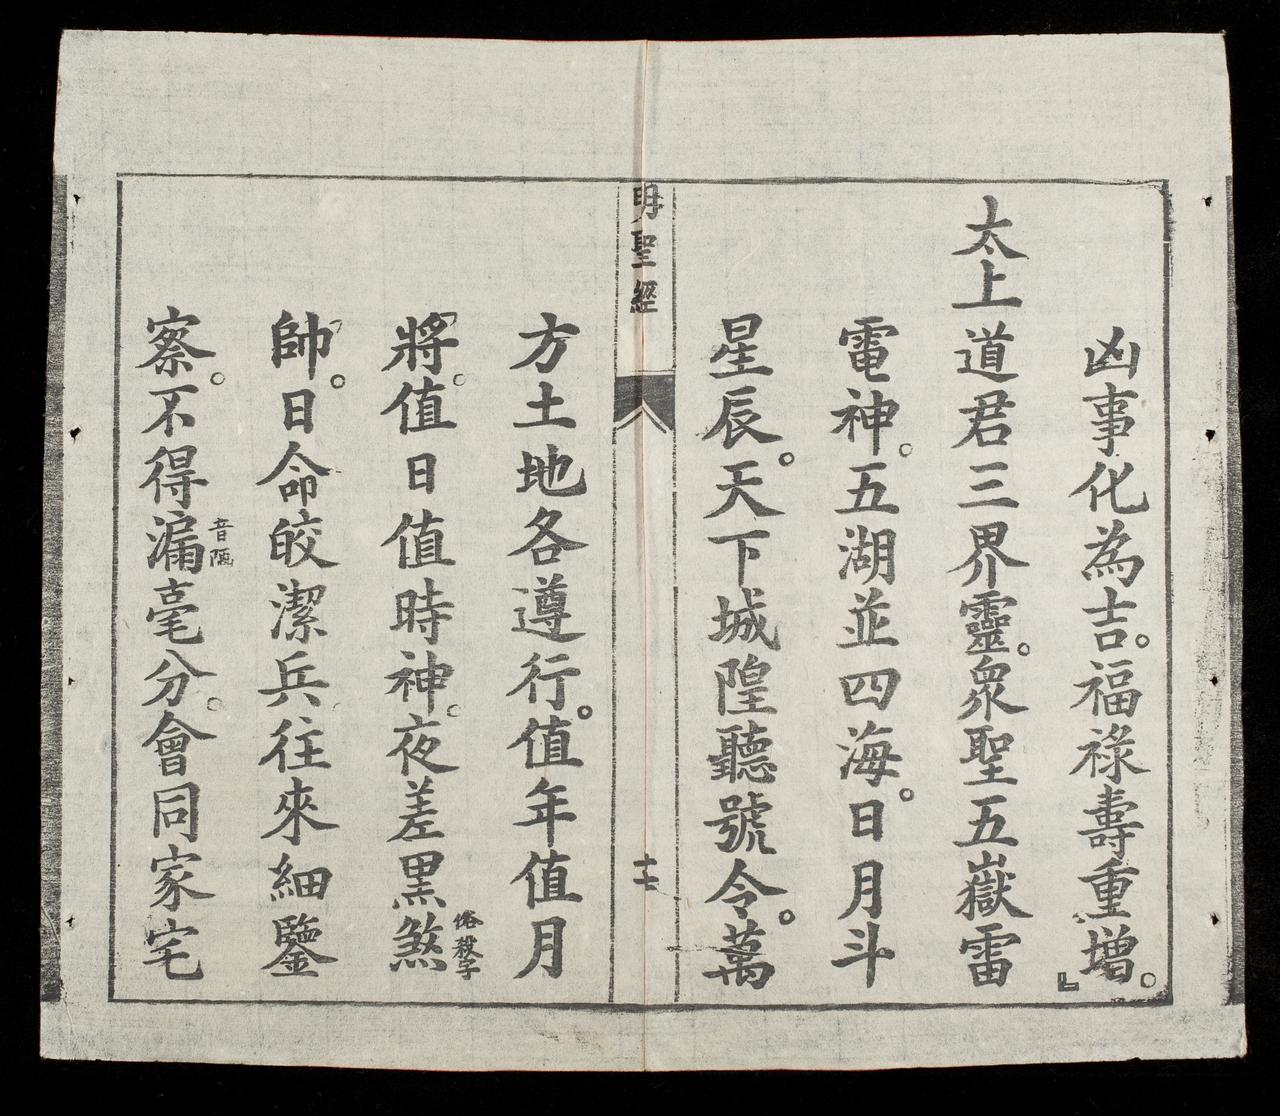 凶事化為吉。福祿壽重增。」
太上道君三界靈。衆聖五嶽雷
電神。五湖並四海。日月斗
星辰。天下城隍聽號令。萬
明聖經
十七
方土地各遵行。值年值月
將。值日值時神。夜差黑煞俗殺字
帥。日命皎潔兵往來細鑒
察。不得漏音陋毫分。會同家宅